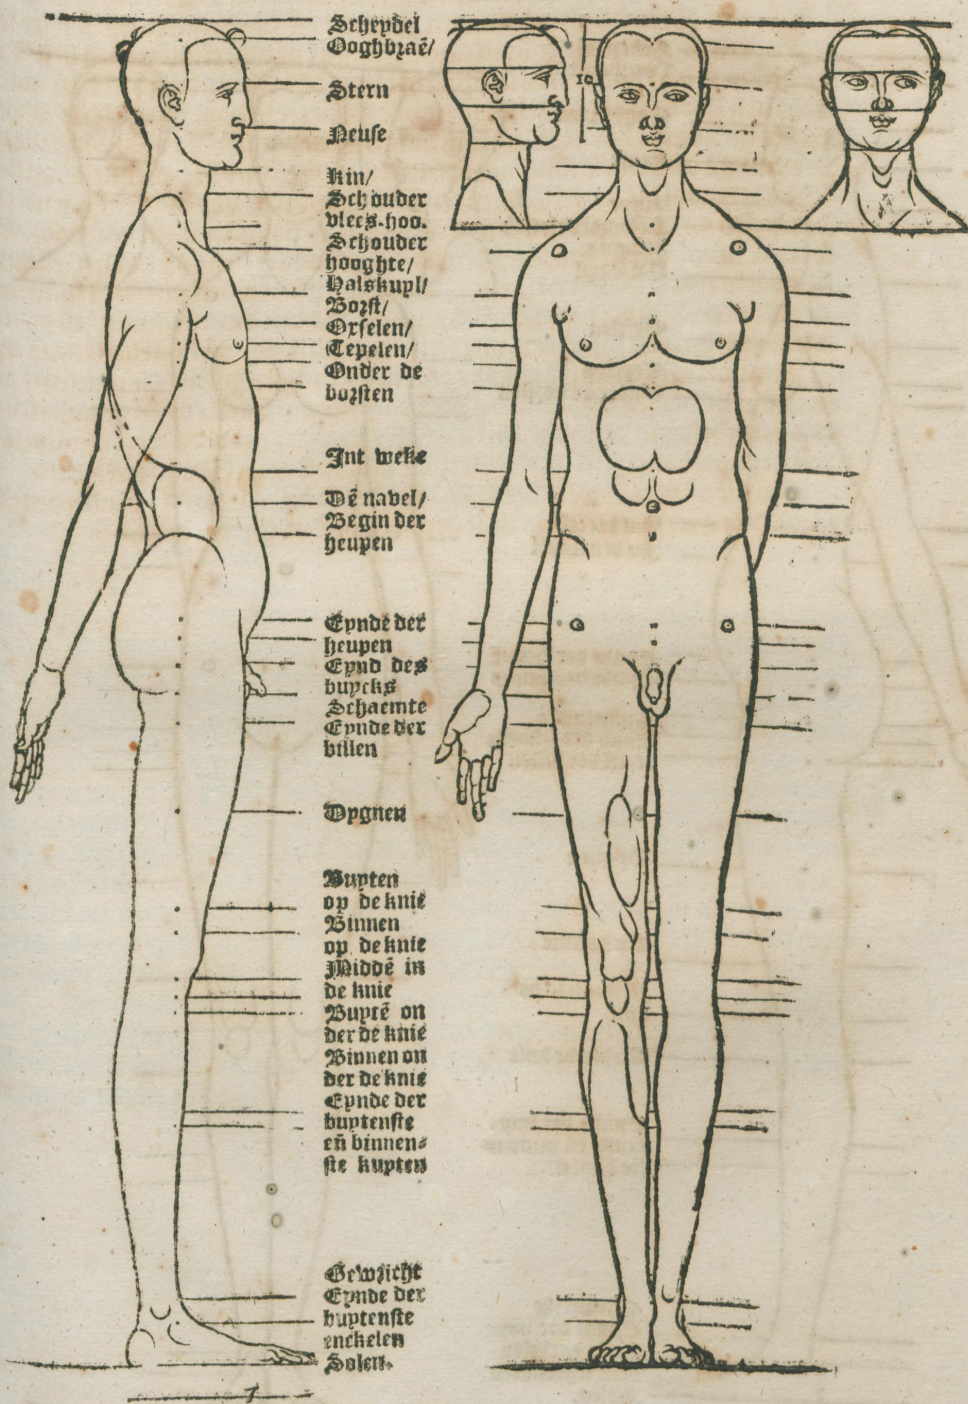 Scheydel
Ooghbraẽ/
Stern
10
Neuse
kin/
Schouder
vlees-hoo.
Schouder
hooghte/
Halskuyl/
Borst/
Oxselen/
Tepelen/
Onder de
borsten
Int weke
Dẽ navel/
Begin der
heupen
Eynde der
heupen
Eynd des
buycks
Schaemte
Eynde der
billen
Dygnen
Buyten
op de knie
Binnen
op de knie
Middẽ in
de knie
Buytẽ on
der de knie
Binnen on
der de knie
Eynde der
buytenste
eñ binnen⸗
ste kuyten
Gewricht
Eynde der
buytenste
enckelen
Solen.
7